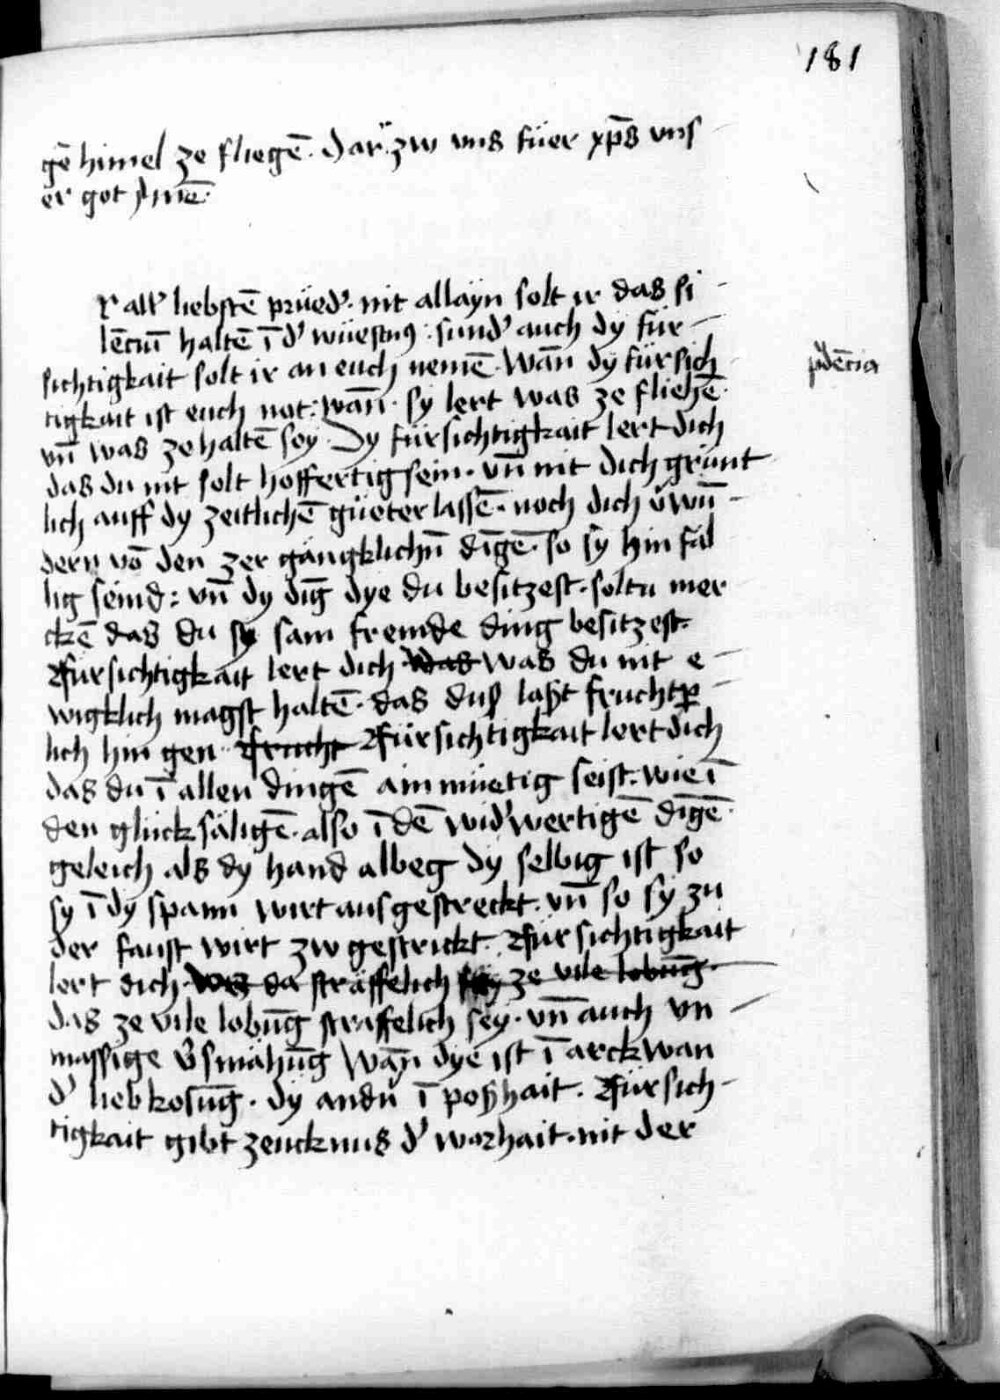 181
gē himel ze fliegē · Dar zw vns füer xp̄s vns
er got Amē ·
r all' liebstē prüed' · nit allayn solt ir das si
lēciū haltē ī d' wüestūg : sund' auch dy für
sichtigkait solt ir an euch nemē · Wān dy fürsich
prudēcia
tigkait ist euch not : wān · sy lert was ze fliehē ·
vn̄ was ze haltē sey · Dy fürsichtigkait lert dich
das du nit solt hoffertig sein · vn̄ nit dich grünt
lich auff dy zeitlichē güeter lassē · noch dich v'wū
dern vō den zer gängklichn̄ dīgē · so sy hin fäl
lig seind : vn̄ dy dīg dye du besitzest · soltu mer
ckē das du sy sam fremde ding besitzest ·
Fürsichtigkait lert dich was was du nit e
wigklich magst haltē · das duß laßt fruchtper
lich hin gen · frucht Fürsichtigkait lert dich
das du ī allen dingē ainmüetig seist · wie ī
den glücksäligē · also ī dē wid'wertigē dīgē ·
geleich als dy hand albeg dy selbig ist so
sy ī dy spann wirt ausgestreckt · vn̄ so sy zu
der faust wirt zw gestrickt · Fürsichtigkait
lert dich · das da sträffelich sey ze vile lobūg ·
das ze vile lobūg sträffelich sey · vn̄ auch vn
massige v'smähūg Wān dye ist ī arckwan
d' liebkosūg · dy andn̄ ī poßhait · Fürsich
tigkait gibt zeucknus d' warhait · nit der